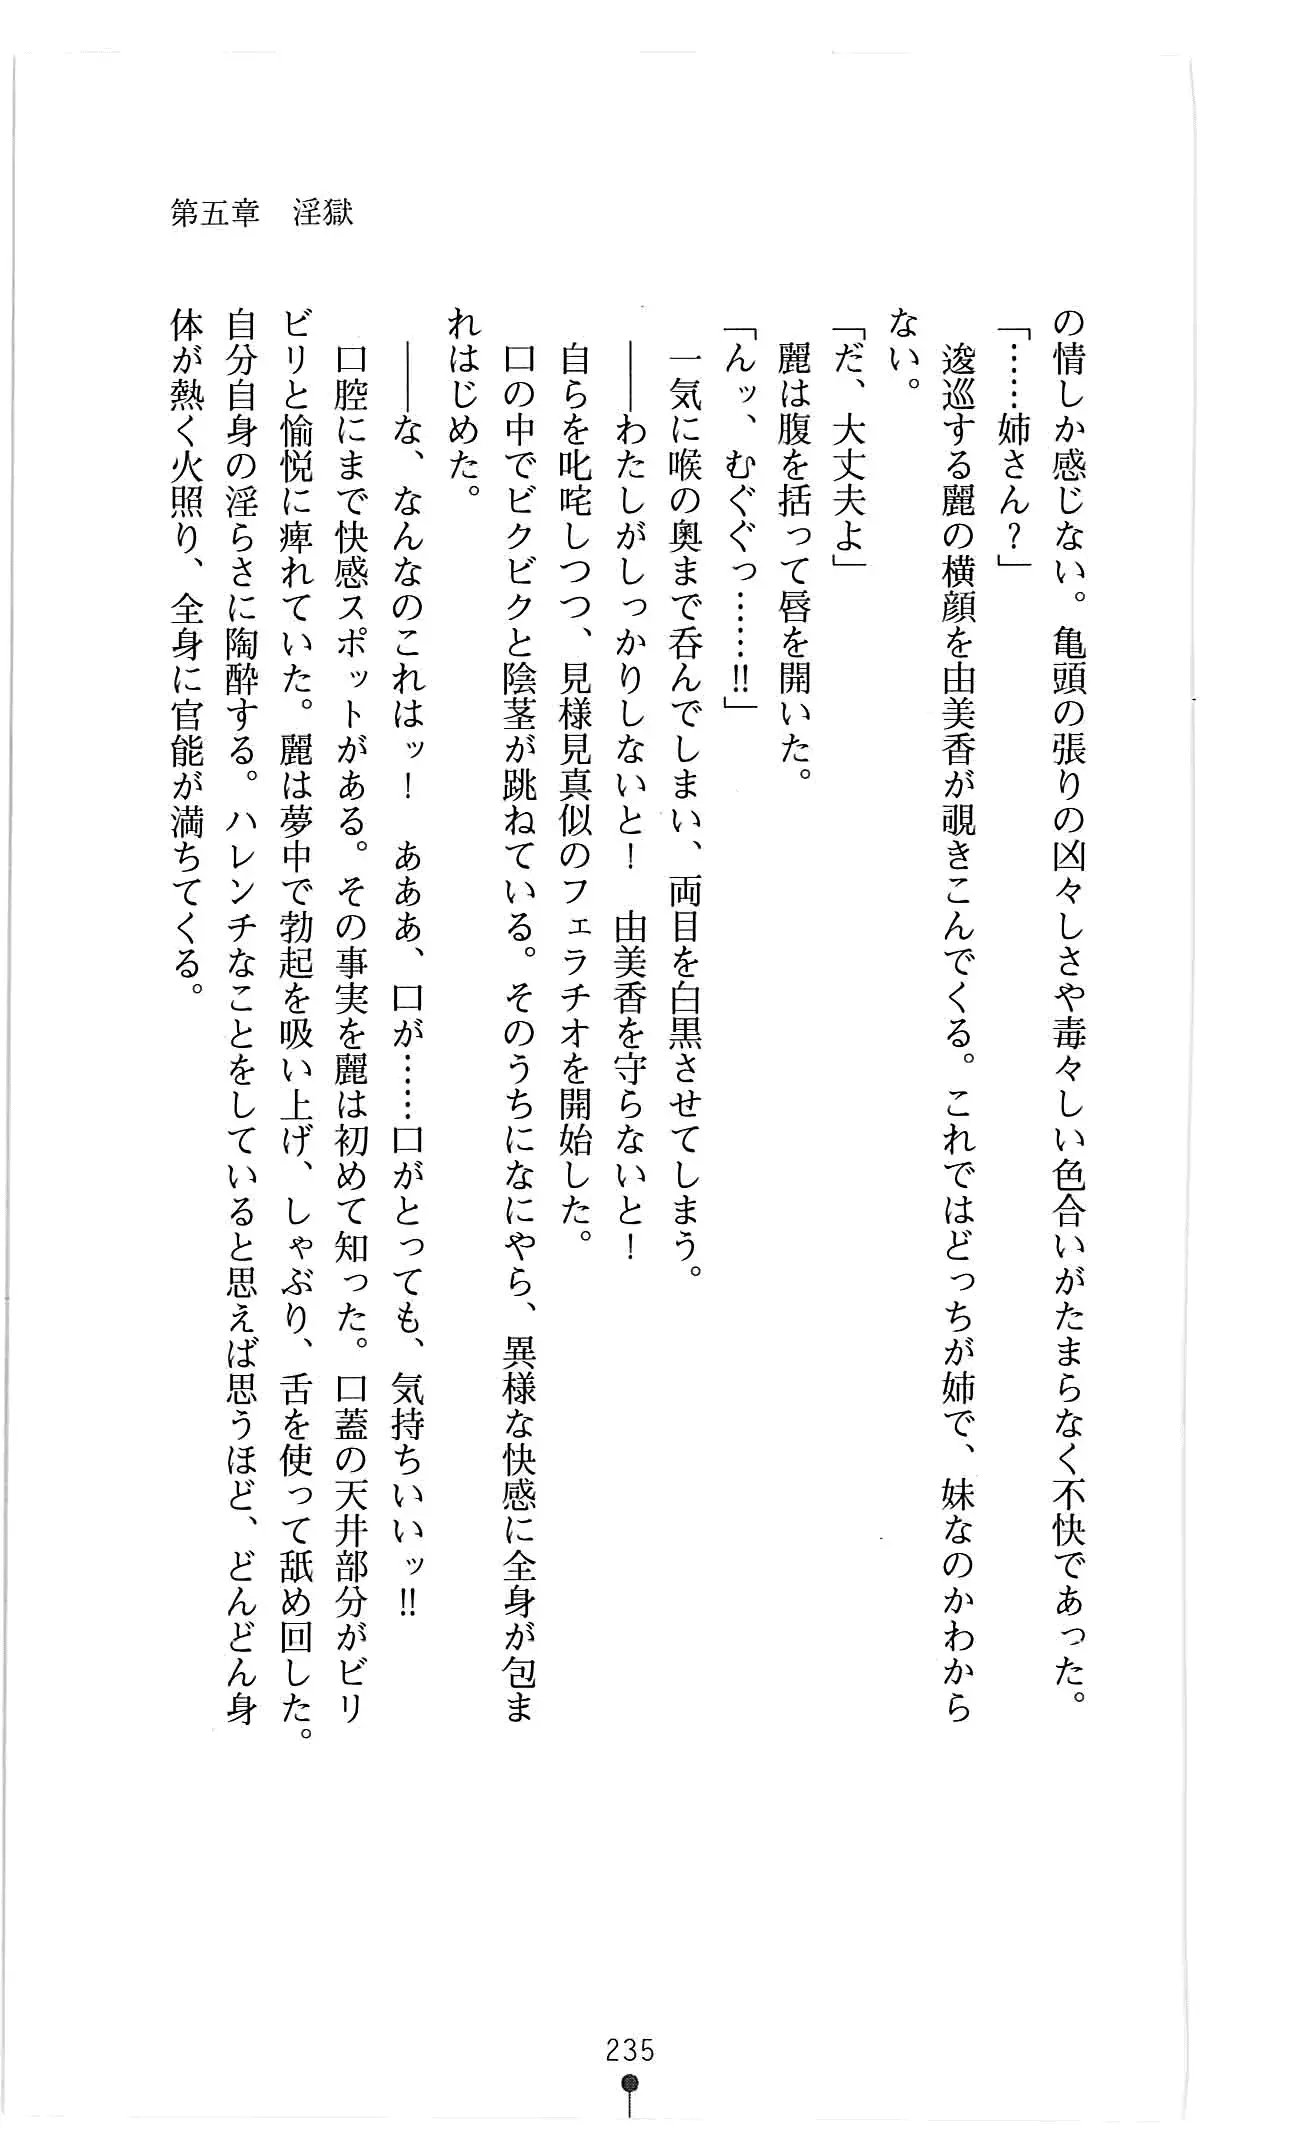 第五章　淫獄
の情しか感じない。亀頭の張りの凶々しさや毒々しい色合いがたまらなく不快であった。
「……姉さん？」
　逡巡する麗の横顔を由美香が覗きこんでくる。これではどっちが姉で、妹なのかわから
ない。
「だ、大丈夫よ」
　麗は腹を括って唇を開いた。
「んッ、むぐぐっ……!!」
　一気に喉の奥まで呑んでしまい、両目を白黒させてしまう。
　――わたしがしっかりしないと！　由美香を守らないと！
　自らを叱咤しつつ、見様見真似のフェラチオを開始した。
　口の中でビクビクと陰茎が跳ねている。そのうちになにやら、異様な快感に全身が包ま
れはじめた。
　――な、なんなのこれはッ！　あああ、口が……口がとっても、気持ちいいッ!!
　口腔にまで快感スポットがある。その事実を麗は初めて知った。口蓋の天井部分がビリ
ビリと愉悦に痺れていた。麗は夢中で勃起を吸い上げ、しゃぶり、舌を使って舐め回した。
自分自身の淫らさに陶酔する。ハレンチなことをしていると思えば思うほど、どんどん身
体が熱く火照り、全身に官能が満ちてくる。
235